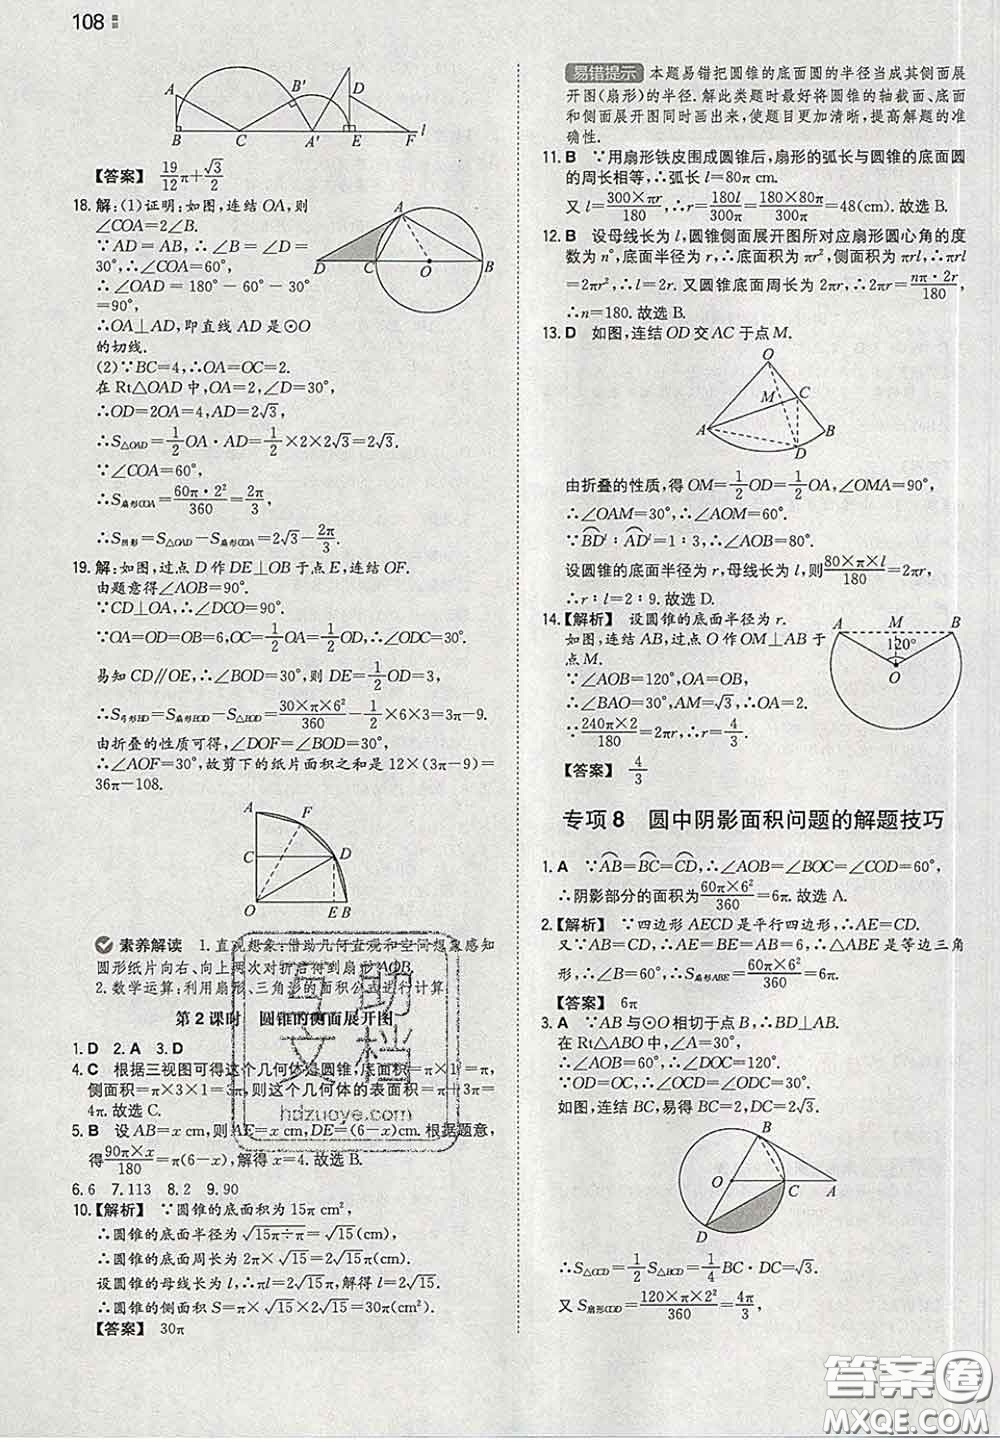 108
A B' D
B C A' E F l
【答案】 19/12π+√3/2
18. 解:(1)证明:如图,连结OA,则
∠COA=2∠B.
∵AD=AB,∴∠B=∠D=30°,
∴∠COA=60°,
∴∠OAD=180°-60°-30°=90°,
∴OA⊥AD,即直线AD是⊙O
的切线.
A
D C O B
(2)∵BC=4,∴OA=OC=2.
在Rt△OAD中,OA=2,∠D=30°,
∴OD=2OA=4,AD=2√3,
∴S△OAD=1/2OA·AD=1/2×2×2√3=2√3.
∵∠COA=60°,
∴S扇形COA=60π·2²/360=2π/3,
∴S阴影=S△OAD-S扇形COA=2√3-2π/3.
19. 解:如图,过点D作DE⊥OB于点E,连结OF.
由题意得∠AOB=90°.
∵CD⊥OA,∴∠DCO=90°.
∵OA=OD=OB=6,OC=1/2OA=1/2OD,∴∠ODC=30°.
易知CD∥OE,∴∠BOD=30°,则DE=1/2OD=3,
∴S弓形BD=S扇形BOD-S△BOD=30×π×6²/360-1/2×6×3=3π-9.
由折叠的性质可得,∠DOF=∠BOD=30°,
∴∠AOF=30°,故剪下的纸片面积之和是12×(3π-9)=
36π-108.
A F
C D
O E B
素养解读 1. 直观想象:借助几何直观和空间想象感知
圆形纸片向右、向上两次对折后得到扇形AOB.
2. 数学运算:利用扇形、三角形的面积公式进行计算.
第2课时 圆锥的侧面展开图
1. D 2. A 3. D
4. C 根据三视图可得这个几何体是圆锥,底面积=π×1=π,
侧面积=π×3×1=3π,则这个几何体的表面积=π+3π=
4π.故选C.
5. B 设AB=x cm,则AE=x cm,DE=(6-x)cm.根据题意,
得90π×x/180=π(6-x),解得x=4.故选B.
6. 6 7. 113 8. 2 9. 90
10.【解析】 ∵圆锥的底面积为15π cm²,
∴圆锥的底面半径为√15π÷π=√15(cm),
∴圆锥的底面周长为2π×√15=2√15π(cm).
设圆锥的母线长为l,∴πl=2√15π,解得l=2√15,
∴圆锥的侧面积S=π×√15×2√15=30π(cm²).
【答案】 30π
易错提示 本题易错把圆锥的底面圆的半径当成其侧面展
开图(扇形)的半径.解此类题时最好将圆锥的轴截面、底面
和侧面展开图同时画出来,使题目更加清晰,提高解题的准
确性.
11. B ∵用扇形铁皮围成圆锥后,扇形的弧长与圆锥的底面圆
的周长相等,∴弧长l=80π cm.
又l=300×πr/180,∴r=180l/300π=180×80π/300π=48(cm).故选B.
12. B 设母线长为l,圆锥侧面展开图所对应扇形圆心角的度
数为n°,底面半径为r,∴底面积为πr²,侧面积为πrl,∴πrl
=2πr²,∴l=2r.又圆锥底面周长为2πr,∴2πr=nπ·2r/180,
∴n=180.故选B.
13. D 如图,连结OD交AC于点M.
O
M C
A B
D
由折叠的性质,得OM=1/2OD=1/2OA,∠OMA=90°,
∴∠OAM=30°,∴∠AOM=60°.
∵BD∶AD=1∶3,∴∠AOB=80°.
设圆锥的底面半径为r,母线长为l,则80×π×l/180=2πr,
∴r∶l=2∶9.故选D.
14.【解析】 设圆锥的底面半径为r.
如图,连结AB,过点O作OM⊥AB于
点M.
∵∠AOB=120°,OA=OB,
∴∠BAO=30°,AM=√3,∴OA=2.
∵240π×2/180=2πr,∴r=4/3.
A M B
120°
O
【答案】 4/3
专项8 圆中阴影面积问题的解题技巧
1. A ∵AB=BC=CD,∴∠AOB=∠BOC=∠COD=60°,
∴阴影部分的面积为60π×6²/360=6π.故选A.
2.【解析】 ∵四边形AECD是平行四边形,∴AE=CD.
又∵AB=CD,∴AE=BE=AB=6,∴△ABE是等边三角
形,∴∠B=60°,∴S扇形ABE=60π×6²/360=6π.
【答案】 6π
3. A ∵AB与⊙O相切于点B,∴BD⊥AB.
在Rt△ABO中,∵∠A=30°,
∴∠AOB=60°,∴∠DOC=120°.
∵OB=OC,∴∠OCB=60°.
如图,连结CB,易得BC=2,DC=2√3.
B
O C A
D
∴S△OCD=1/2S△BCD=1/4BC·DC=√3.
又S扇形COD=120×π×2²/360=4π/3,
互助
文档
hdzuoye.com
答案圈
MXQE.COM